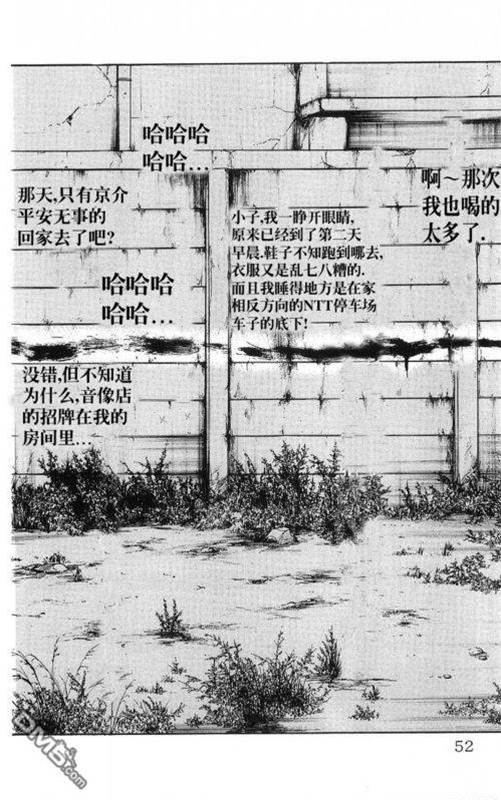 啊～那次
我也喝的
太多了.
小子,我一睁开眼睛,
原来已经到了第二天
早晨.鞋子不知跑到哪去,
衣服又是乱七八糟的.
而且我睡得地方是在家
相反方向的NTT停车场
车子的底下!
哈哈哈
哈哈...
那天,只有京介
平安无事的
回家去了吧?
哈哈哈
哈哈...
没错,但不知道
为什么,音像店
的招牌在我的
房间里...
52
DMB5.com